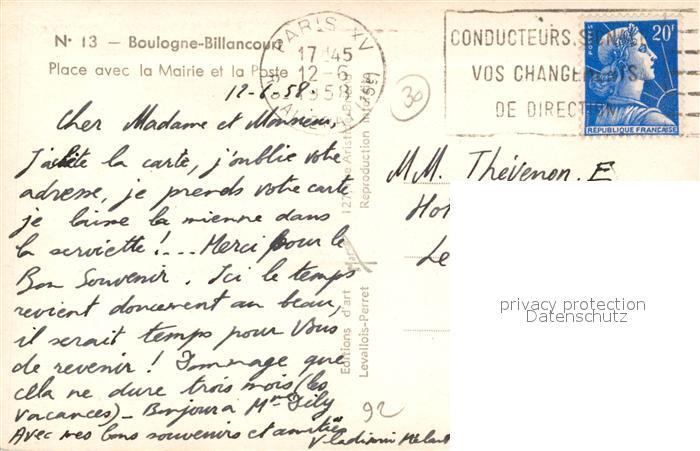 N° 13 — Boulogne-Billancourt
Place avec la Mairie et la Poste
PARIS XV
17H45
12-6
1958
CONDUCTEURS, SIGNALEZ
VOS CHANGEMENTS
DE DIRECTION
POSTES
20F
REPUBLIQUE FRANÇAISE
30
12-6-58.
Cher Madame et Monsieur,
J'achète la carte, j'oublie votre
adresse, je prends votre carte
je laisse la mienne dans
la serviette!.... Merci pour le
Bon Souvenir. Ici le temps
revient doucement au beau,
il serait temps pour Vous
de revenir! Dommage que
cela ne dure trois mois (les
vacances)_ Bonjour à Mme
Avec mes bons souvenirs et amitiés
Vladimir
92
Editions d'art
Levallois-Perret
Reproduction interdite
MM. Thévenon. E
Hot
Le
privacy protection
Datenschutz